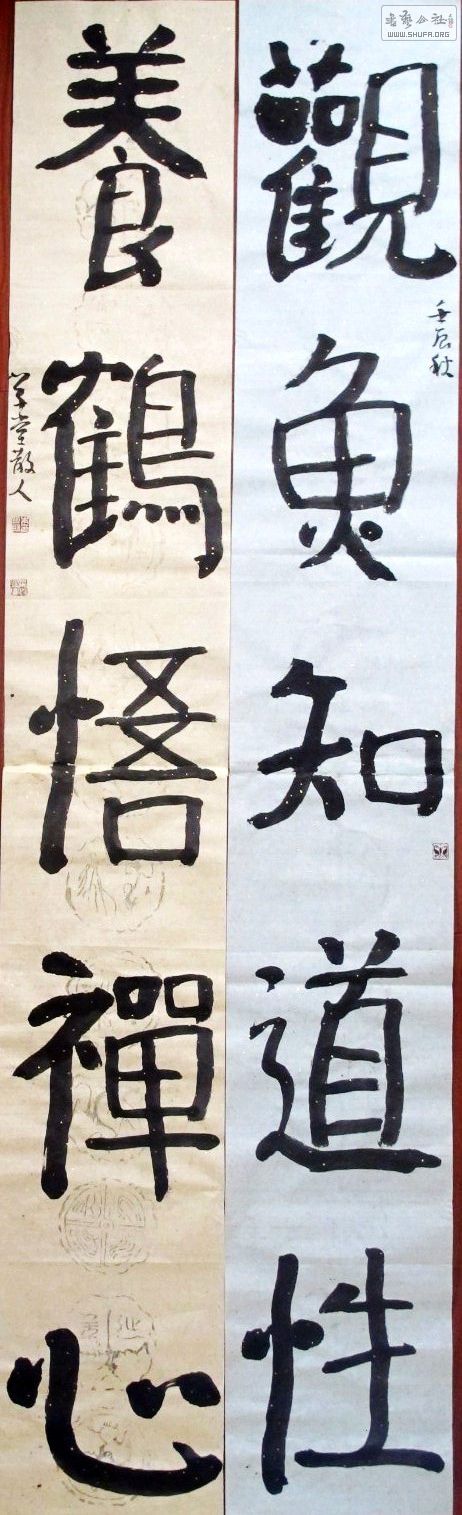 觀魚知道性
壬辰秋
養鶴悟禪心
草堂散人
書藝公社
WWW.SHUFA.ORG